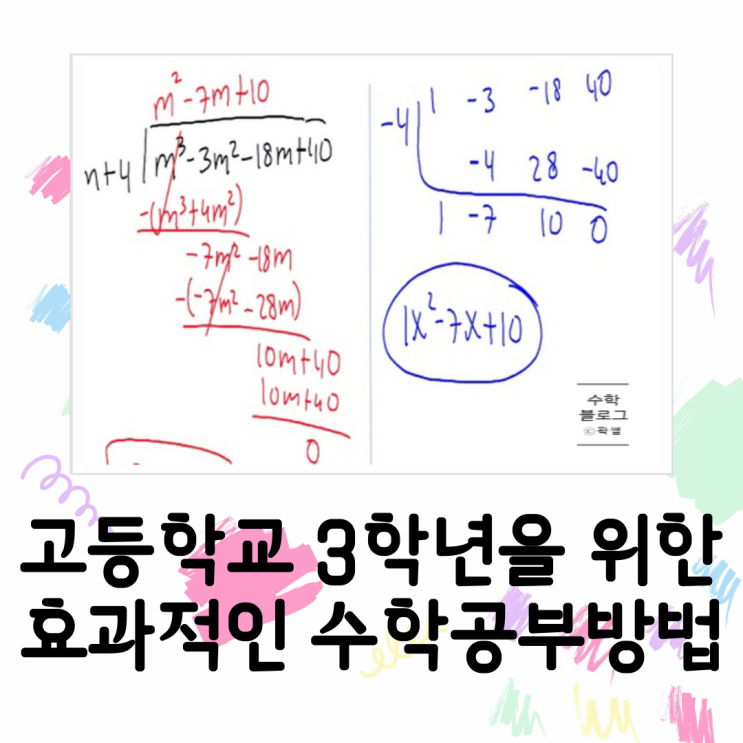 m² - 7m + 10
n+4 | m³ - 3m² - 18m + 40
-(m³ + 4m²)
-7m² - 18m
-(-7m² - 28m)
10m + 40
10m + 40
0
-4 | 1 -3 -18 40
-4 28 -40
1 -7 10 0
1x² - 7x + 10
수학
블로그
©곽쌤
고등학교 3학년을 위한
효과적인 수학공부방법